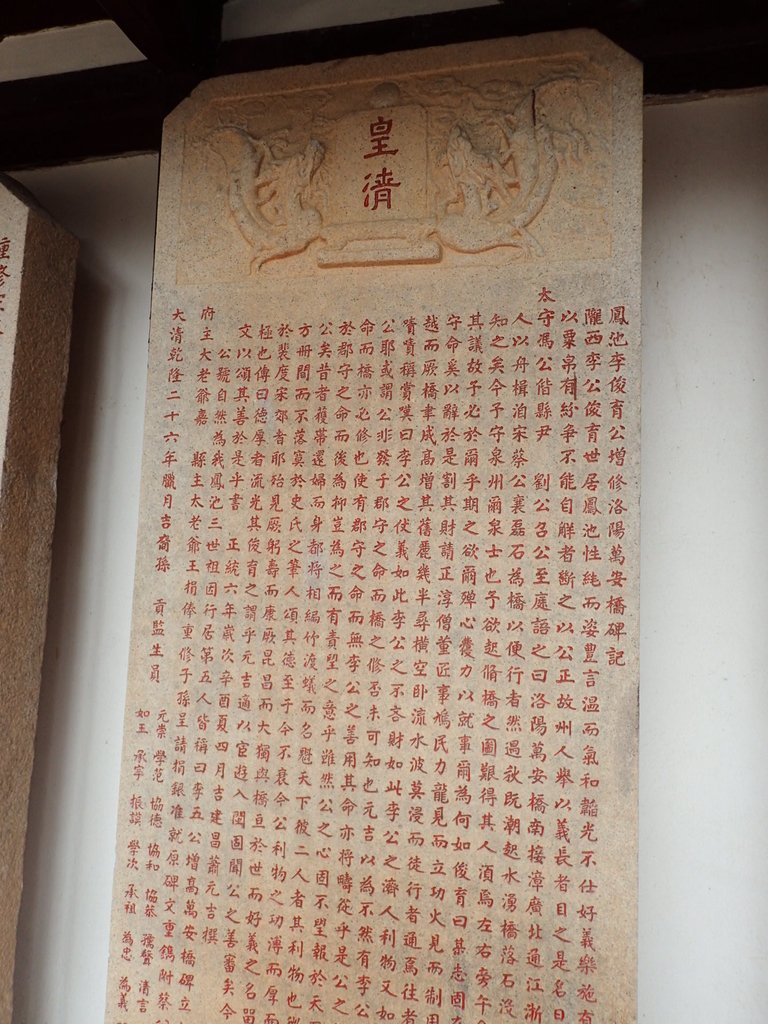 皇清
鳳池李俊育公增修洛陽萬安橋碑記
隴西李公俊育世居鳳池性純而姿豐言溫而氣和韜光不仕好義樂施有
以粟帛有紛爭不能自解者斷之以公正故州人舉以義長者目之是名日
太守馮公偕縣尹 劉公召公至庭語之曰洛陽萬安橋南接漳廣北通江浙
人以舟楫洎宋蔡公襄磊石為橋以便行者然過秋既潮起水湧橋落石沒
知之矣今予守泉州爾泉士也予欲起脩橋之圖艱得其人湏焉左右旁午
其議故予必於爾乎期之欲爾殫心慶力以就事爾為何如俊育曰某志固
守命奚以辭於是割其財請正淳僧董匠事鳩民力龍見而立功火見而制用
越而厥橋聿成高增其舊麗幾半尋橫空卧流水波莫浸而徒行者通焉往者
嘖嘖稱賞嘆曰李公之仗義如此李公之不吝財如此李公之濟人利物又如
公耶或謂公非發于郡守之命而橋之修否未可知也元吉以為不然有李公
命而橋亦必修也使有郡守之命而無李公之善用其命亦将疇從乎是公之
於郡守之命而後為抑豈為之而有責望之意乎雖然公之心固不望報於天
公矣昔者獲帶還婦而身都将相編竹渡蟻而名魁天下彼二人者其利物也
方冊間而不落寞於史氏之筆人頌其德至于今不衰今公利物之功溥而厚
於裴度宋郊者耶殆見厥躬壽而康厥昆昌而大獨與橋亘於世而好義之名留
極也傳曰德厚者流光其俊育之謂乎元吉適以宦遊入閩固聞公之善審矣今
文以頌其善於是乎書 正統六年歲次辛酉夏四月吉建昌蕭元吉撰
公號自然為我鳳池三世祖因行居第五人皆稱曰李五公增高萬安橋碑立
府主大老爺嘉 縣主太老爺王捐俸重修子孫呈請捐銀准就原碑文重鐫附蔡
大清乾隆二十六年臘月吉裔孫 貢監生員
元崇 學范 協德 協和 協恭 清言
如玉 承寧 振謨 學次 承祖 為忠 為義
重修